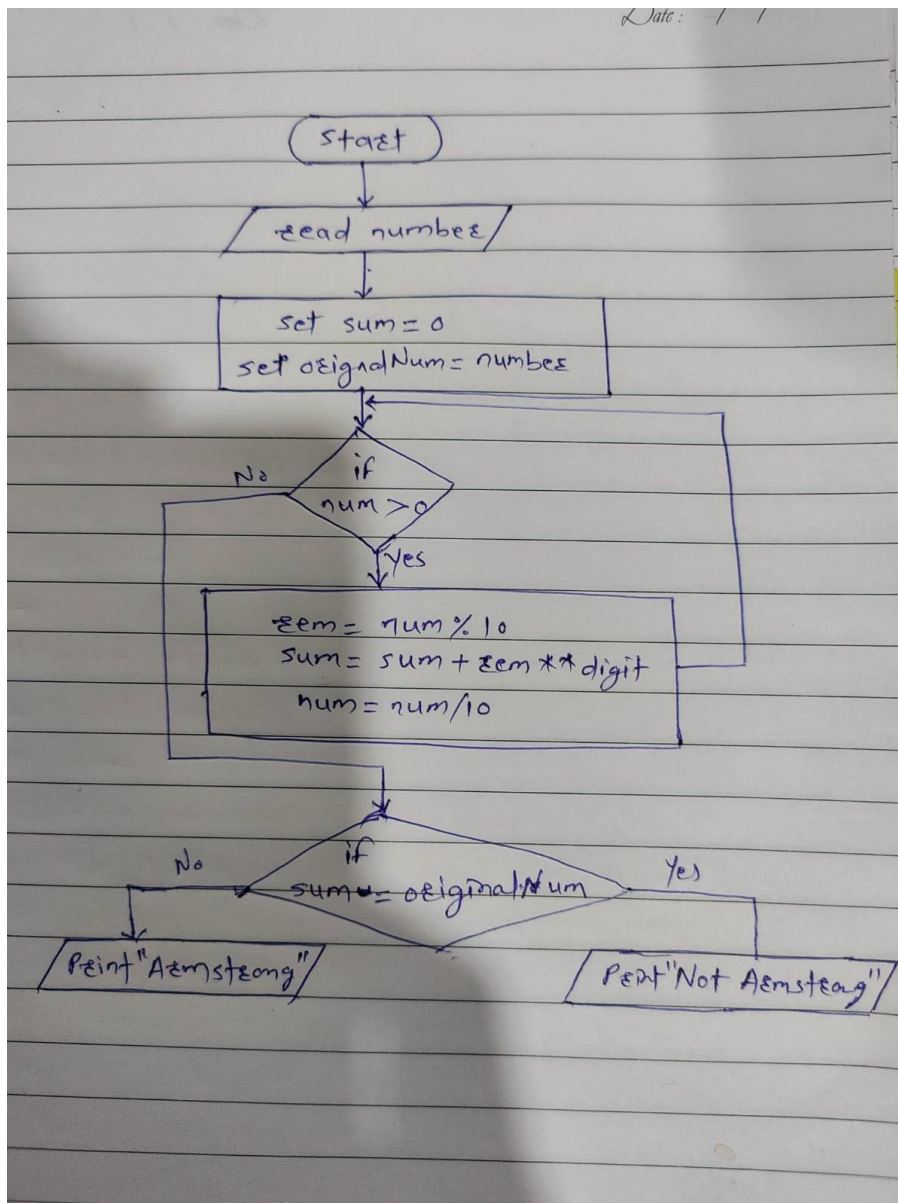 Date : / /
Start
read number
set sum = 0
set orignalNum = number
if
num > 0
No
Yes
rem = num % 10
sum = sum + rem ** digit
num = num/10
if
sum = originalNum
No
Yes
Print "Armstrong"
Print "Not Armstrong"